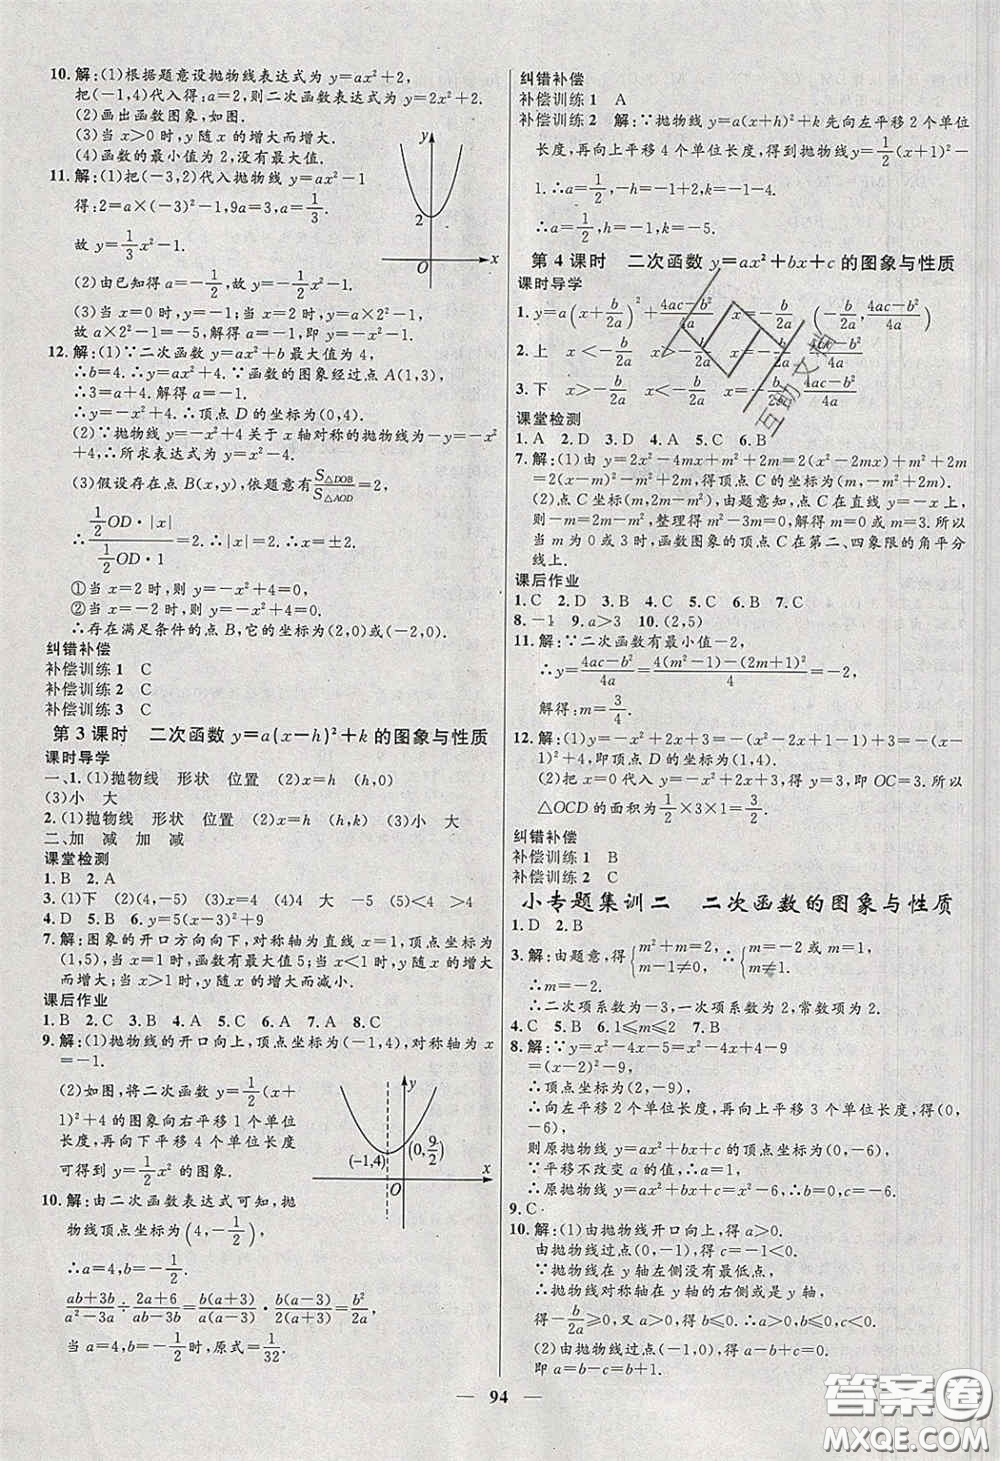 10. 解:(1)根据题意设抛物线表达式为 y=ax²+2,
把(-1,4)代入得:a=2,则二次函数表达式为 y=2x²+2.
(2)画出函数图象,如图.
(3)当 x>0时,y 随 x 的增大而增大.
(4)函数的最小值为 2,没有最大值.
11. 解:(1)把(-3,2)代入抛物线 y=ax²-1
得:2=a×(-3)²-1,9a=3,a=1/3.
故 y=1/3x²-1.
(2)由(1)同理可得出:a=-1,
(3)当 x=-1时,y=-1;当 x=2时,y=-5,
故 a×2²-1=-5,解得 a=-1,即 y=-x²-1.
12. 解:(1)∵二次函数 y=ax²+b 的最大值为 4,
∴b=4. ∴y=ax²+4. ∵函数的图象经过点 A(1,3),
∴3=a+4. 解得 a=-1.
∴y=-x²+4. ∴顶点 D 的坐标为(0,4).
(2)∵抛物线 y=-x²+4 关于 x 轴对称的抛物线 -y=-x²
+4,∴所求抛物线表达式为 y=x²-4.
(3)假设存在点 B(x,y),依题意有S△DOB/S△AOD=2,
∴(1/2OD·|x|)/(1/2OD·1)=2. ∴|x|=2. ∴x=±2.
①当 x=2时,则 y=-x²+4=0,
②当 x=-2时,则 y=-x²+4=0.
∴存在满足条件的点 B,它的坐标为(2,0)或(-2,0).
纠错补偿
补偿训练 1 C
补偿训练 2 C
补偿训练 3 C
第 3 课时 二次函数 y=a(x-h)²+k 的图象与性质
课时导学
一、1. (1)抛物线 形状 位置 (2)x=h (h,0)
(3)小 大
2. (1)抛物线 形状 位置 (2)x=h (h,k) (3)小 大
二、加 减 加 减
课堂检测
1. B 2. A
3. (1)下 (2)(4,-5) (3)x=4 (4)4 大 -5 (5)<4 >4
4. D 5. B 6. y=5(x-3)²+9
7. 解:图象的开口方向向下,对称轴为直线 x=1,顶点坐标为
(1,5),当 x=1时,函数有最大值5;当 x<1时,y 随 x 的增大
而增大;当 x>1时,y 随 x 的增大而减小.
课后作业
1. B 2. C 3. B 4. A 5. B 6. A 7. A 8. C
9. 解:(1)抛物线的开口向上,顶点坐标为(-1,4),对称轴为 x
=-1.
(2)如图,将二次函数 y=1/2(x+
1)²+4 的图象向右平移 1 个单位
长度,再向下平移 4 个单位长度
可得到 y=1/2x² 的图象.
y
(-1,4)
(0,9/2)
O
x
10. 解:由二次函数表达式可知,抛
物线顶点坐标为(4,-1/2),
∴a=4,b=-1/2.
(ab+3b)/(a²-3a)÷(2a+6)/(a²-6a+9)=b(a+3)/a(a-3)·(a-3)²/2(a+3)=b/2a
当 a=4,b=-1/2时,原式=1/32.
纠错补偿
补偿训练 1 A
补偿训练 2 解:∵抛物线 y=a(x+h)²+k 先向左平移 2 个单位
长度,再向上平移 4 个单位长度,得到抛物线 y=1/2(x+1)²-
1. ∴a=1/2,h=1-2,k=-1-4.
∴a=1/2,h=-1,k=-5.
第 4 课时 二次函数 y=ax²+bx+c 的图象与性质
课时导学
1. y=a(x+b/2a)²+(4ac-b²)/4a x=-b/2a (-b/2a,(4ac-b²)/4a)
2. 上 x<-b/2a x>-b/2a x=-b/2a (4ac-b²)/4a
3. 下 x>-b/2a x<-b/2a x=-b/2a (4ac-b²)/4a
课堂检测
1. A 2. D 3. D 4. A 5. C 6. B
7. 解:(1)由 y=2x²-4mx+m²+2m=2(x²-2mx)+m²+2m
=2(x-m)²-m²+2m,得顶点 C 的坐标为(m,-m²+2m).
(2)点 C 坐标(m,2m-m²),由题意知,点 C 在直线 y=-x 上,
则-m=2m-m²,整理得 m²-3m=0,解得 m=0 或 m=3. 所以
当 m 为 0 或 3时,函数图象的顶点 C 在第二、四象限的角平分
线上.
课后作业
1. C 2. D 3. A 4. D 5. B 6. B 7. C
8. -1 9. a>3 10. (2,5)
11. 解:∵二次函数有最小值-2,
∴y=(4ac-b²)/4a=(4(m²-1)-(2m+1)²)/4=-2,
解得:m=3/4.
12. 解:(1)∵y=-x²+2x+3=-(x²-2x)+3=-(x-
1)²+4,∴抛物线的顶点坐标为(1,4).
(2)把 x=0代入 y=-x²+2x+3,得 y=3,即 OC=3. 所以
△OCD 的面积为1/2×3×1=3/2.
纠错补偿
补偿训练 1 B
补偿训练 2 C
小专题集训二 二次函数的图象与性质
1. D 2. B
3. 解:由题意,得{m²+m=2, m-1≠0, ∴{m=-2或 m=1, m≠1.
∴m=-2.
∴二次项系数为-3,一次项系数为-2,常数项为 2.
4. C 5. B 6. 1≤m≤2 7. B
8. 解:∵y=x²-4x-5=x²-4x+4-9
∴顶点坐标为(2,-9).
∴向左平移 2 个单位长度,再向上平移 3 个单位长度,得(0,
-6),
则原抛物线 y=ax²+bx+c 的顶点坐标为(0,-6),
∵平移不改变 a 的值,∴a=1,
∴原抛物线 y=ax²+bx+c=x²-6.
9. C
10. 解:(1)由抛物线开口向上,得 a>0.
由抛物线过点(0,-1),得 c=-1<0.
∵抛物线在 y 轴左侧没有最低点,
∴抛物线对称轴在 y 轴的右侧或是 y 轴,
得-b/2a≥0. ∵a>0,得 b≤0. ∴a>0,b≤0,c<0.
(2)由抛物线过点(-1,0),得 a-b+c=0.
即 a=b-c=b+1. ∵a>0,b≤0,
94
答案圈
MXQE.COM